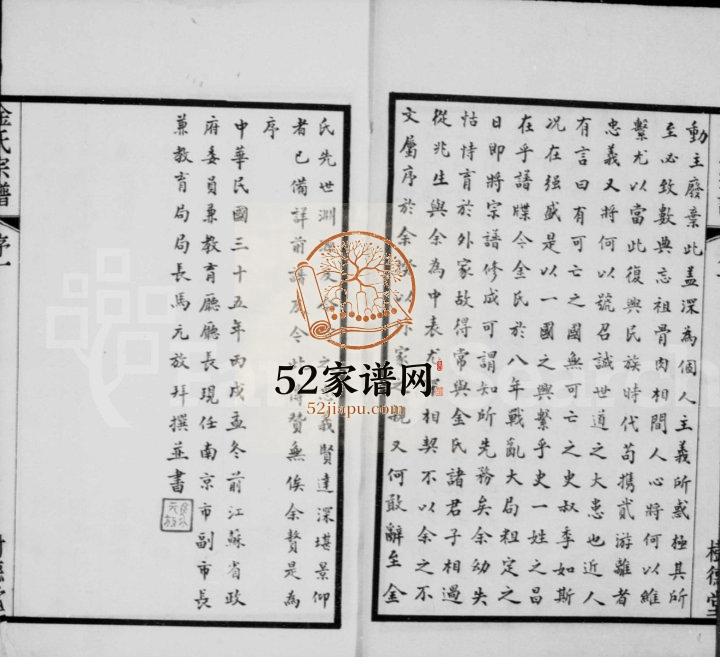 動主廢棄此盖深為個人主義所惑極其所
至必致數典忘祖骨肉相間人心將何以維
繫尤以當此復興民族時代苟攜貳游離者
忠義又將何以號召誠世道之大患也近人
有言曰有可亡之國無可亡之史叔季如斯
況在强盛是以一國之興繫乎史一姓之昌
在乎譜牒今金氏於八年戰亂大局粗定之
日即將宗譜修成可謂知所先務矣余幼失
怙恃育於外家故得常與金氏諸君子相過
從兆生與余為中表尤相契不以余之不
文屬序於余以家親又何敢辭至金
氏先世淵義賢達深堪景仰
者已備詳前譜贊無俟余贅是為
序
中華民國三十五年丙戌孟冬前江蘇省政
府委員兼教育廳廳長現任南京市副市長
兼教育局局長馬元放拜撰並書
金氏宗譜
序一
樹德堂
52家谱网
52jiapu.com